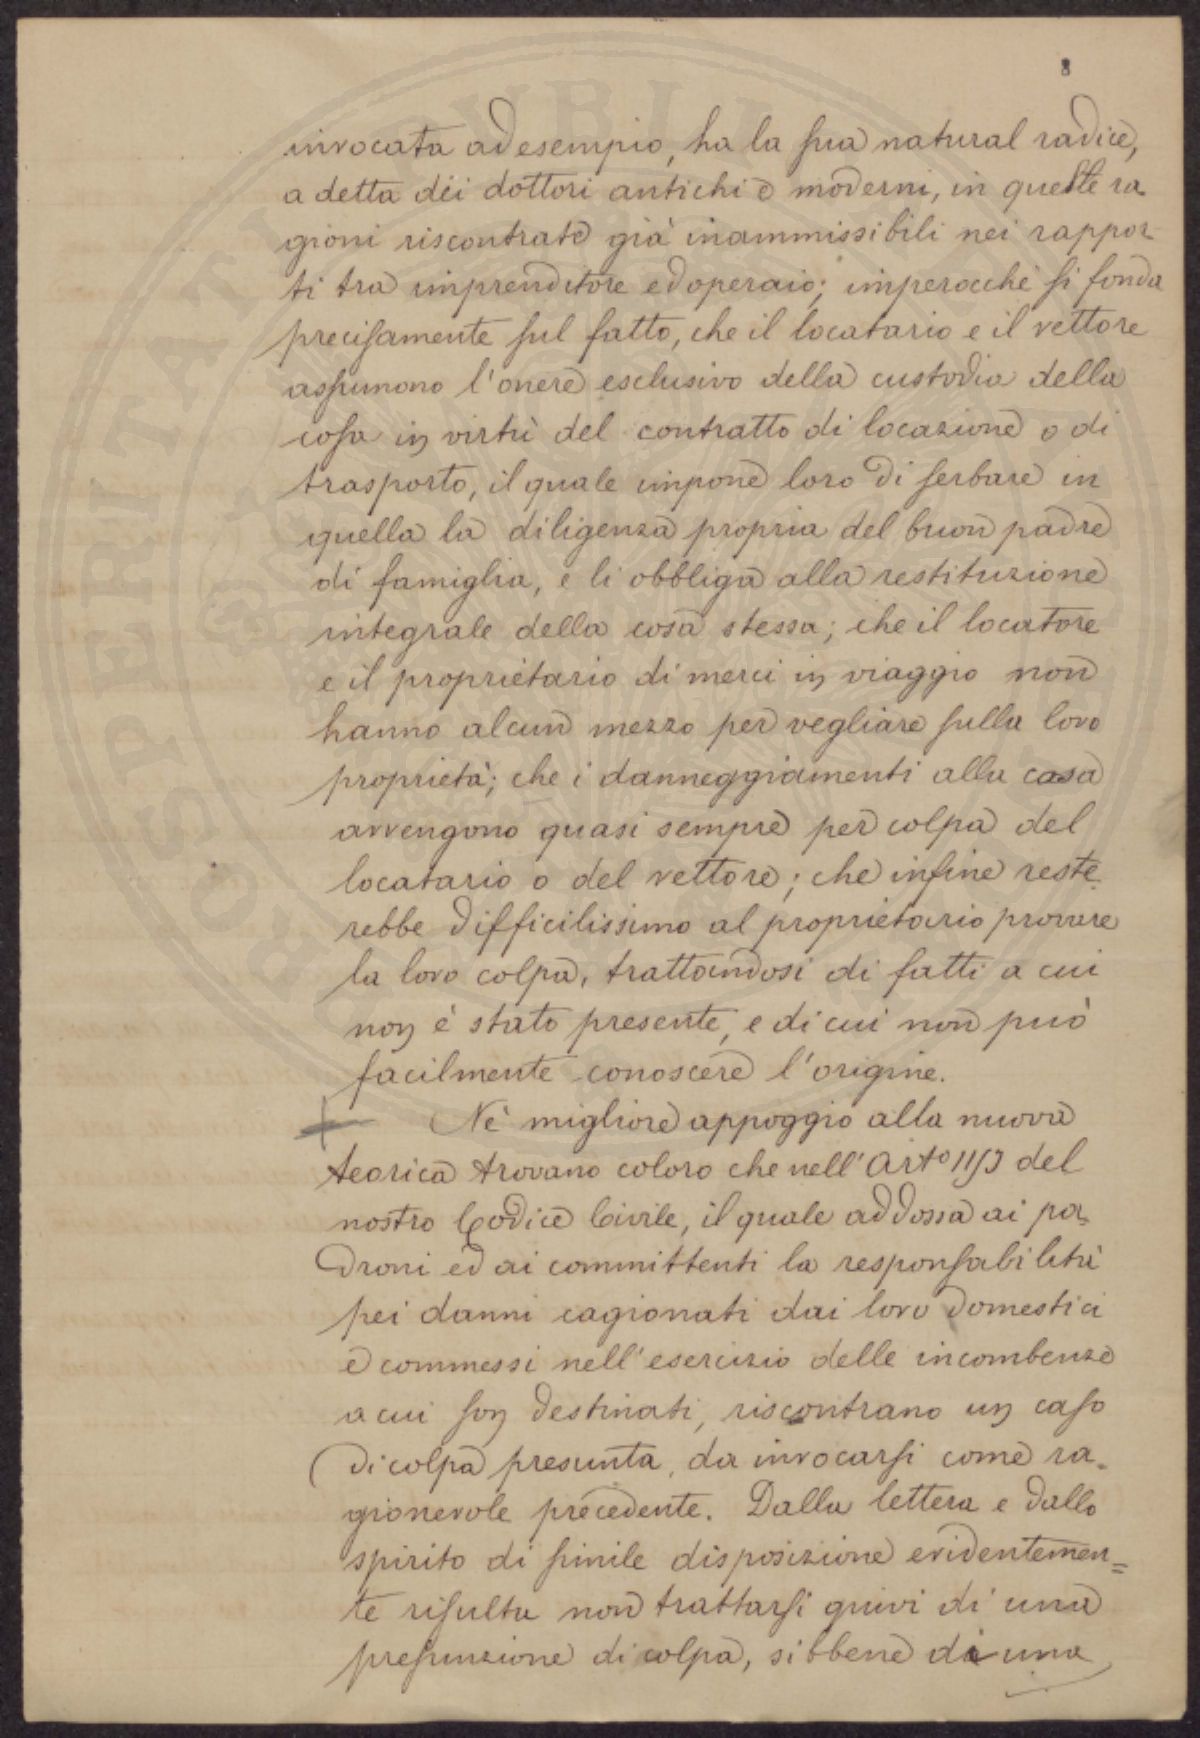 8
invocata ad esempio, ha la sua natural radice,
a detta dei dottori antichi e moderni, in queste ra
gioni riscontrate già inammissibili nei rappor-
ti tra imprenditore ed operaio; imperocchè si fonda
precisamente sul fatto, che il locatario e il vettore
assumono l'onere esclusivo della custodia della
cosa in virtù del contratto di locazione o di
trasporto, il quale impone loro di serbare in
quella la diligenza propria del buon padre
di famiglia, e li obbliga alla restituzione
integrale della cosa stessa; che il locatore
e il proprietario di merci in viaggio non
hanno alcun mezzo per vegliare sulla loro
proprietà; che i danneggiamenti alla casa
avvengono quasi sempre per colpa del
locatario o del vettore; che infine reste-
rebbe difficilissimo al proprietario provare
la loro colpa, trattandosi di fatti a cui
non è stato presente, e di cui non può
facilmente conoscere l'origine.
Nè migliore appoggio alla nuova
teorica trovano coloro che nell'Arto 1153 del
nostro Codice Civile, il quale addossa ai pa-
droni ed ai committenti la responsabilità
pei danni cagionati dai loro domestici
e commessi nell'esercizio delle incombenze
a cui son destinati, riscontrano un caso
di colpa presunta, da invocarsi come ra-
gionevole precedente. Dalla lettera e dallo
spirito di simile disposizione evidentemen=
te risulta non trattarsi quivi di una
presunzione di colpa, sibbene di una
PROSPERITATI PVBLICAE